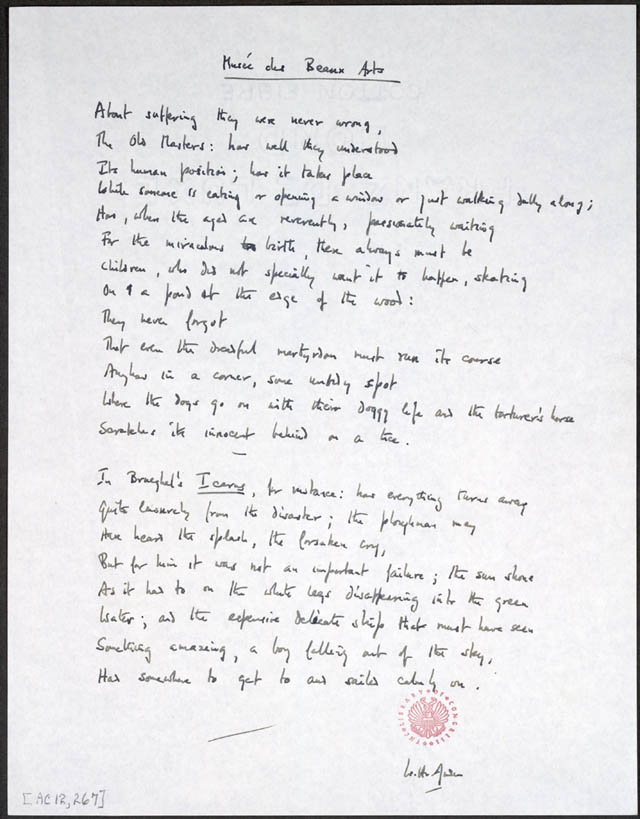 Musée des Beaux Arts
About suffering they were never wrong,
The Old Masters: how well they understood
Its human position; how it takes place
While someone is eating or opening a window or just walking dully along;
How, when the aged are reverently, passionately waiting
For the miraculous birth, there always must be
Children, who did not specially want it to happen, skating
On a pond at the edge of the wood:
They never forgot
That even the dreadful martyrdom must run its course
Anyhow in a corner, some untidy spot
Where the dogs go on with their doggy life and the torturer's horse
Scratches its innocent behind on a tree.
In Brueghel's Icarus, for instance: how everything turns away
Quite leisurely from the disaster; the ploughman may
Have heard the splash, the forsaken cry,
But for him it was not an important failure; the sun shone
As it had to on the white legs disappearing into the green
Water; and the expensive delicate ship that must have seen
Something amazing, a boy falling out of the sky,
Had somewhere to get to and sailed calmly on.
LIBRARY OF CONGRESS
W. H. Auden
[AC 12,267]